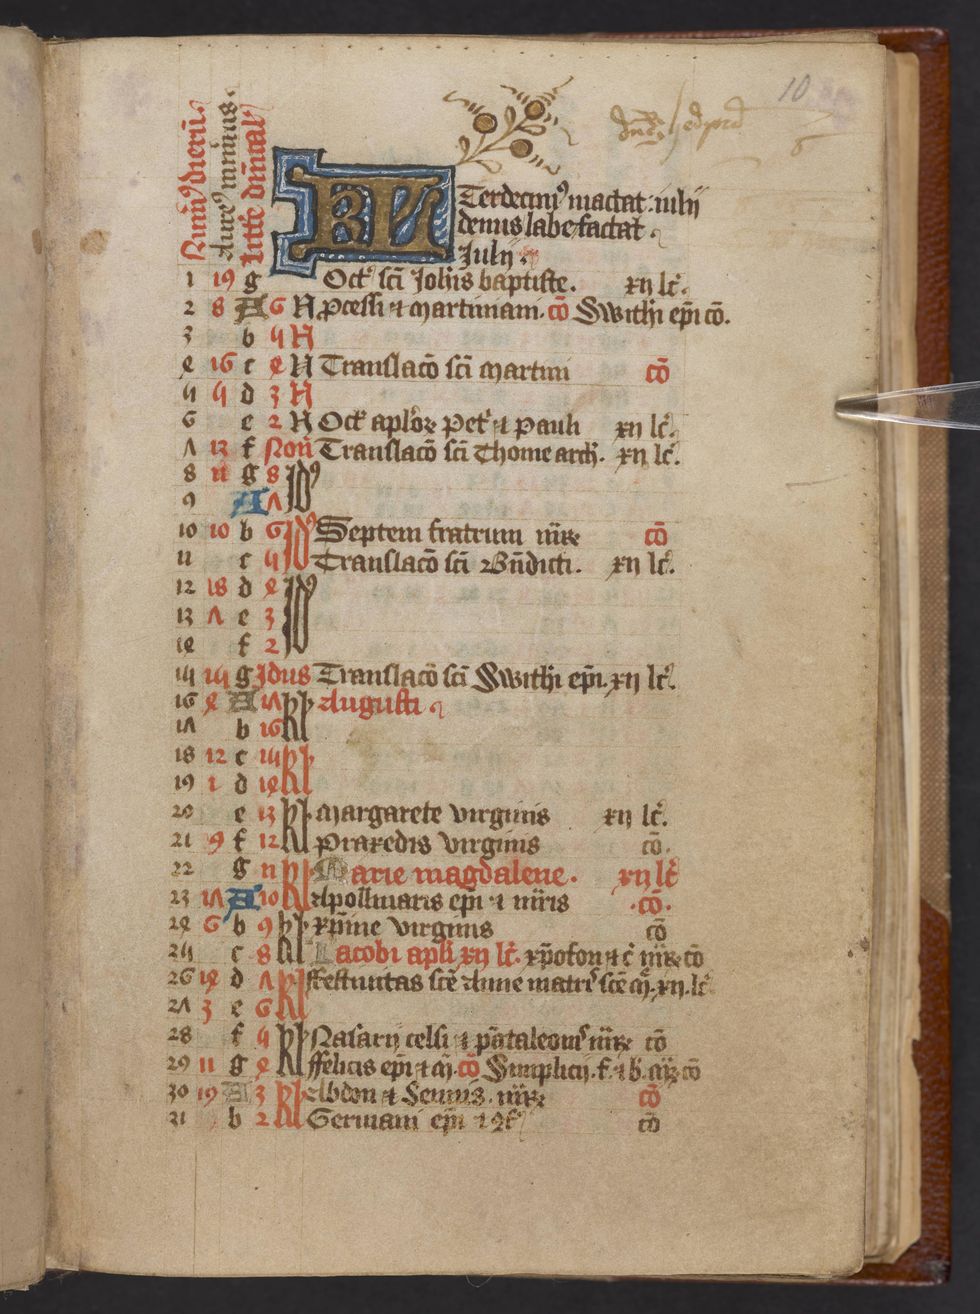 10
Num⁹ dierū.
Aure⁹ numerus.
Littē dn̄icales
KL Terdecim⁹ mactat: iulij
denus labefactat
Julij
1 19 g Oct' sc̄i Joh̄is baptiste. xij lc̄.
2 8 A 6 N P̱cessi ⁊ martiniani. cō Swithi ep̄i cō.
3 b 4 N
4 16 c 4 N Translacō sc̄i martini cō
5 5 d 3 N
6 e 2 N Oct' aplōꝝ Pet' ⁊ Pauli xij lc̄.
7 13 f Non̄ Translacō sc̄i Thome arch'. xij lc̄.
8 ii g 8 Jd⁹
9 A 7
10 10 b 6 Jd⁹ Septem fratrum mr̄ꝝ cō
11 c 5 Translacō sc̄i Bn̄dicti. xij lc̄.
12 18 d 4 Jd⁹
13 7 e 3
14 f 2
15 15 g Jdus Translacō sc̄i Swithi ep̄i. xij lc̄.
16 4 A 17 kl Augusti
17 b 16
18 12 c 15 kl
19 1 d 14
20 e 13 kl Margarete virginis xij lc̄.
21 9 f 12 Praxedis virginis cō.
22 g 11 kl Marie magdalene. xij lc̄
23 17 A 10 Apollinaris ep̄i ⁊ mr̄is .cō.
24 6 b 9 kl xp̄ine virginis cō
25 c 8 Iacobi apl̄i xij lc̄. xp̄ofori ⁊ c̄ mr̄ꝝ cō
26 14 d 7 kl ffestiuitas sc̄e Anne matr' sc̄e m̄. xij. lc̄
27 3 e 6
28 f 5 kl Nasarij celsi ⁊ pātaleonis mr̄ꝝ cō
29 11 g 4 ffelicis ep̄i ⁊ m̄. cō Simplicij. f. ⁊ b. mr̄ꝝ cō
30 19 A 3 kl Abdon ⁊ Sennis. mr̄ꝝ cō
31 b 2 Germani ep̄i ⁊ ꝯf' cō